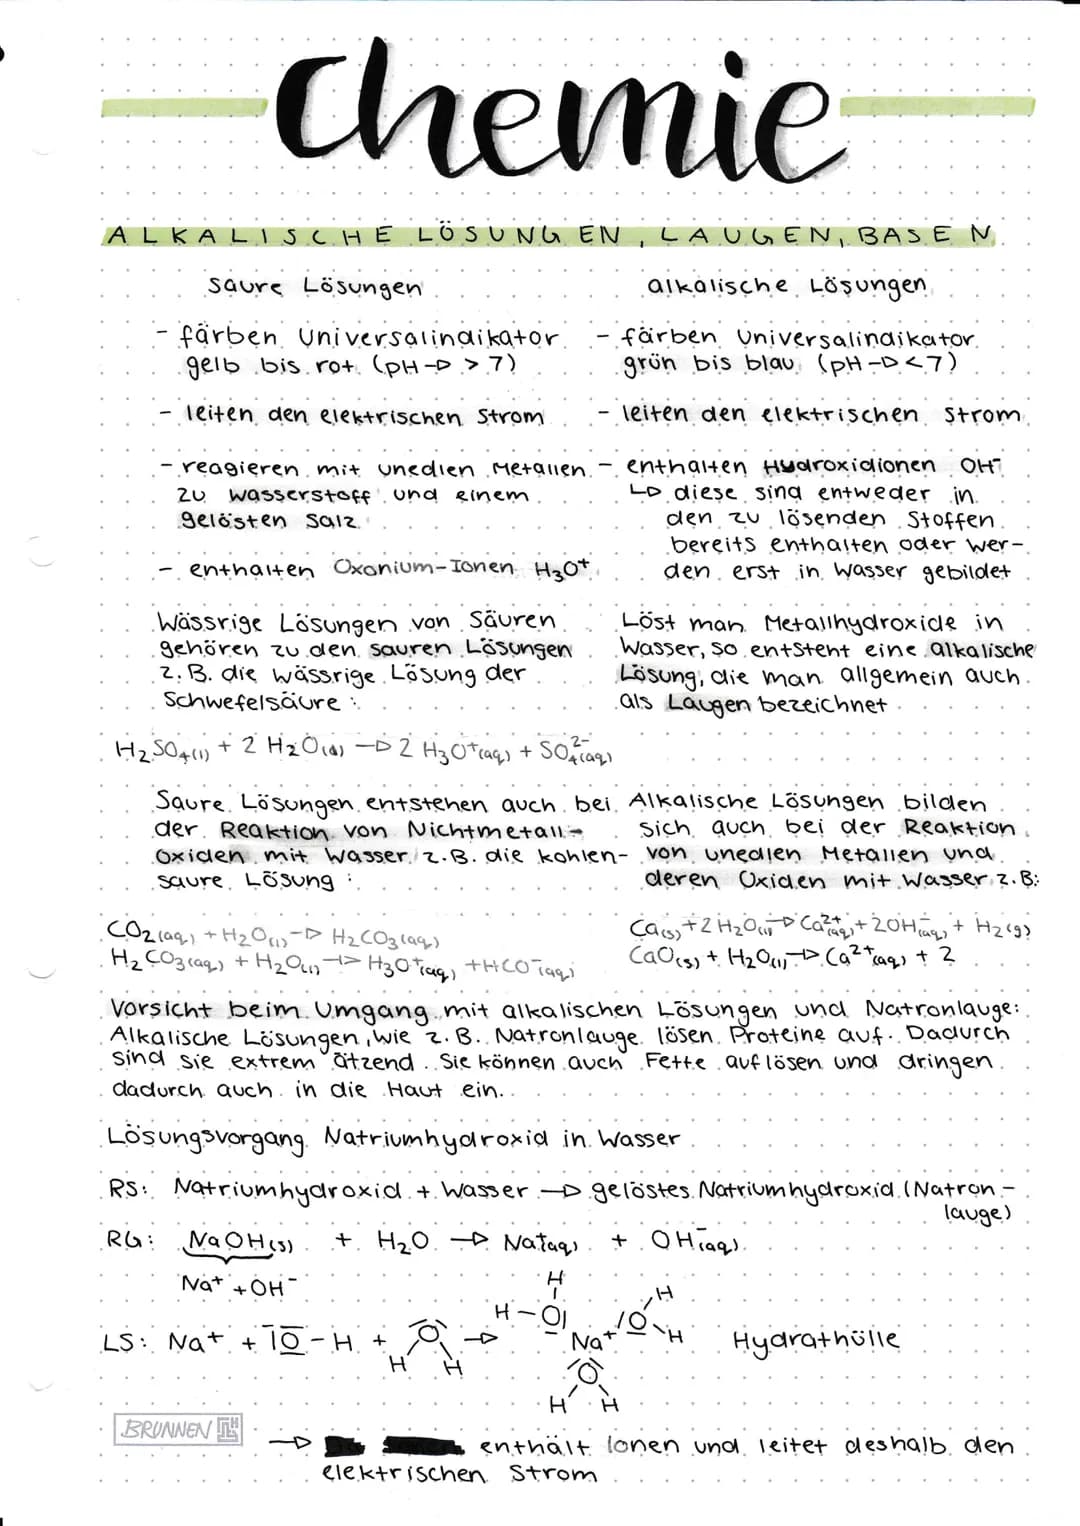 Chemie
ALKALISCHE LÖSUNGEN, LAUGEN, BASEN
saure Lösungen
- färben Universalindikator
gelb bis rot (pH → > 7)
- leiten den elektrischen Strom
- reagieren mit unedlen Metallen
zu Wasserstoff und einem
gelösten Salz
- enthalten Oxonium-Ionen H₃O⁺
Wässrige Lösungen von Säuren
gehören zu den sauren Lösungen
z.B. die wässrige Lösung der
Schwefelsäure:
H₂SO₄(l) + 2 H₂O(l) → 2 H₃O⁺(aq) + SO₄²⁻(aq)
Saure Lösungen entstehen auch bei
der Reaktion von Nichtmetall-
Oxiden mit Wasser, z.B. die kohlen-
saure Lösung:
CO₂(aq) + H₂O(l) → H₂CO₃(aq)
H₂CO₃(aq) + H₂O(l) → H₃O⁺(aq) + HCO⁻(aq)
alkalische Lösungen
- färben Universalindikator
grün bis blau (pH → < 7)
- leiten den elektrischen Strom
- enthalten Hydroxidionen OH⁻
↳ diese sind entweder in
den zu lösenden Stoffen
bereits enthalten oder wer-
den erst in Wasser gebildet
Löst man Metallhydroxide in
Wasser, so entsteht eine alkalische
Lösung, die man allgemein auch
als Laugen bezeichnet
Alkalische Lösungen bilden
sich auch bei der Reaktion
von unedlen Metallen und
deren Oxiden mit Wasser z.B:
Ca(s) + 2 H₂O(l) → Ca²⁺(aq) + 2OH⁻(aq) + H₂(g)
CaO(s) + H₂O(l) → Ca²⁺(aq) + 2
Vorsicht beim Umgang mit alkalischen Lösungen und Natronlauge:
Alkalische Lösungen, wie z.B. Natronlauge lösen Proteine auf. Dadurch
sind sie extrem ätzend. Sie können auch Fette auflösen und dringen
dadurch auch in die Haut ein.
Lösungsvorgang Natriumhydroxid in Wasser
RS: Natriumhydroxid + Wasser → gelöstes Natriumhydroxid (Natron-
lauge)
RG: NaOH(s) + H₂O → Na(aq) + OH⁻(aq)
Na⁺ + OH⁻
H
H-O
O H
H
LS: Na⁺ + O-H + O → Na⁺ Hydrathülle
H H
O
H H
BRUNNEN
→ enthält Ionen und leitet deshalb den
elektrischen Strom